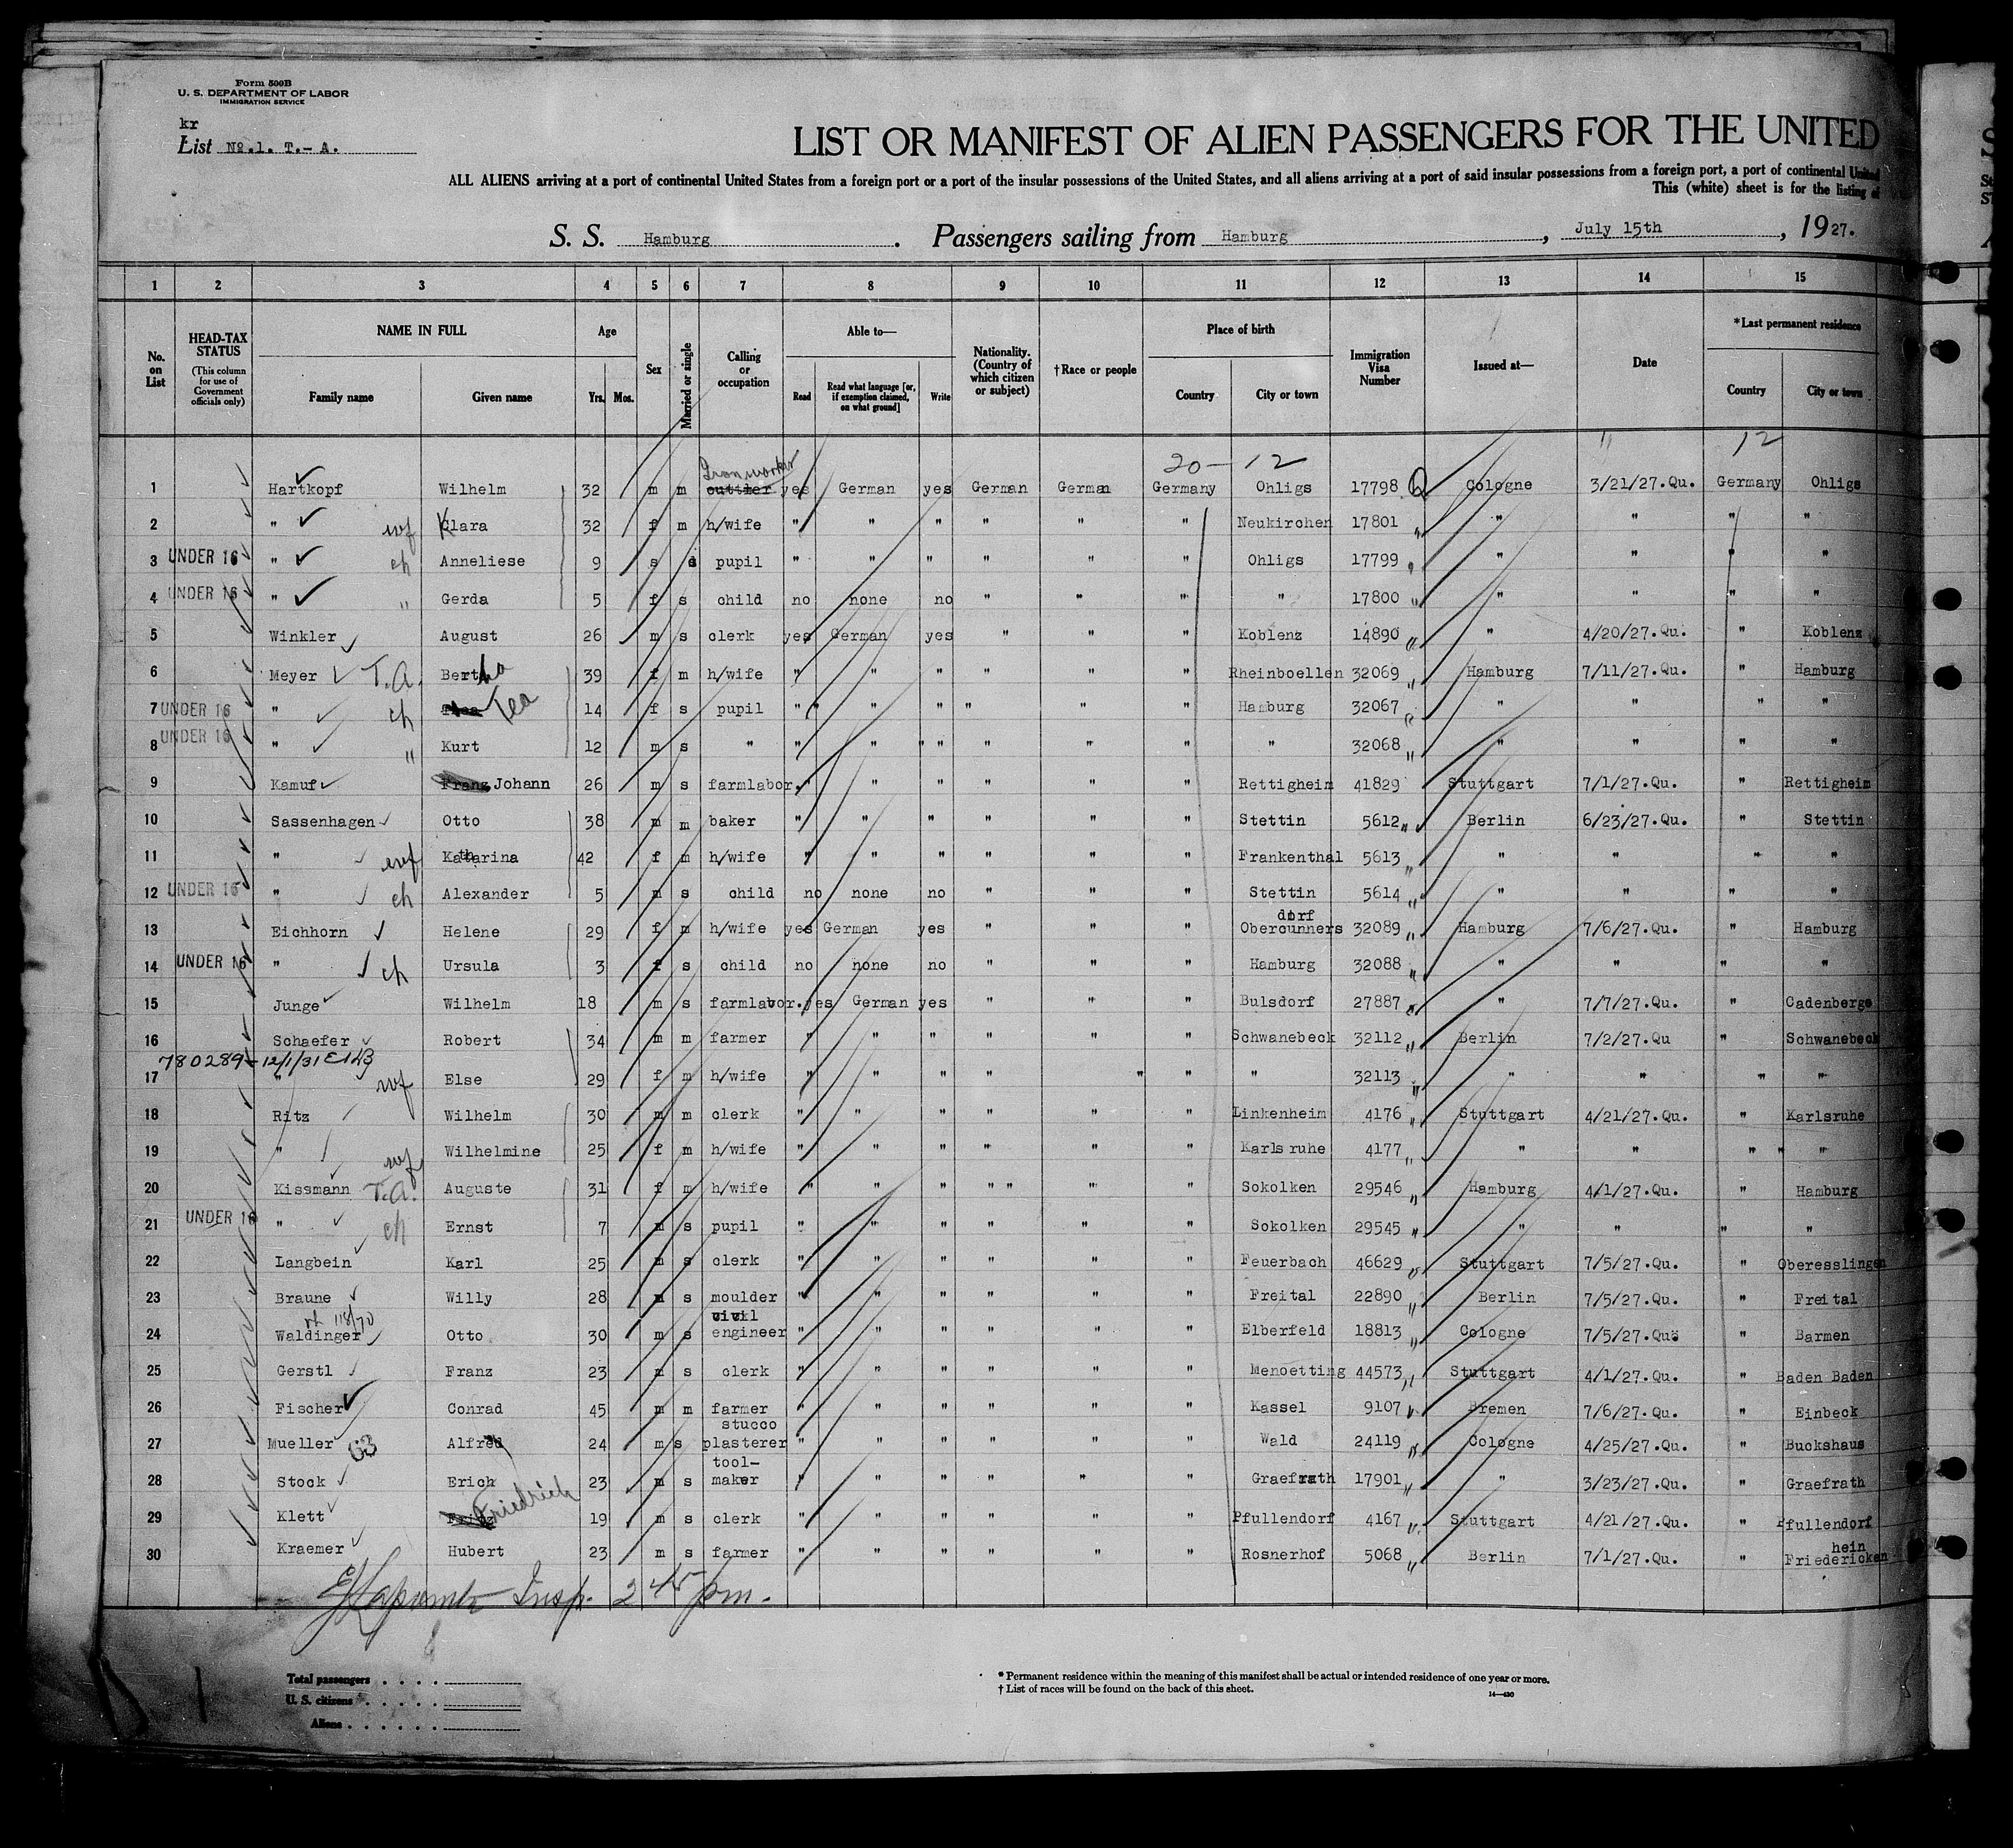 Form 500B
U. S. DEPARTMENT OF LABOR
IMMIGRATION SERVICE
kr
List No.1. T.- A.
LIST OR MANIFEST OF ALIEN PASSENGERS FOR THE UNITED
ALL ALIENS arriving at a port of continental United States from a foreign port or a port of the insular possessions of the United States, and all aliens arriving at a port of said insular possessions from a foreign port, a port of continental United
This (white) sheet is for the listing of
S. S. Hamburg . Passengers sailing from Hamburg , July 15th , 1927.
1 2 3 4 5 6 7 8 9 10 11 12 13 14 15
No. on List HEAD-TAX STATUS (This column for use of Government officials only) NAME IN FULL Family name Given name Age Yrs. Mos. Sex Married or single Calling or occupation Able to— Read Read what language [or, if exemption claimed, on what ground] Write Nationality. (Country of which citizen or subject) †Race or people Place of birth Country City or town Immigration Visa Number Issued at— Date *Last permanent residence Country City or town
20-12 " 12
Ironworker
1 Hartkopf Wilhelm 32 m m cuttler yes German yes German German Germany Ohligs 17798 Q Cologne 3/21/27.Qu. Germany Ohligs
2 " wf Klara 32 f m h/wife " " " " " " Neukirchen 17801 " " " " "
3 UNDER 16 " ch Anneliese 9 s s pupil " " " " " " Ohligs 17799 " " " " "
4 UNDER 16 " " Gerda 5 f s child no none no " " " " 17800 " " " " "
5 Winkler August 26 m s clerk yes German yes " " " Koblenz 14890 " " 4/20/27.Qu. " Koblenz
6 Meyer T.A. Bertha 39 f m h/wife " " " " " " Rheinboellen 32069 " Hamburg 7/11/27.Qu. " Hamburg
7 UNDER 16 " ch Thea Tea 14 f s pupil " " " " " " Hamburg 32067 " " " " "
8 UNDER 16 " " Kurt 12 m s " " " " " " " " 32068 " " " " "
9 Kamuf Franz Johann 26 m s farmlabor. " " " " " " Rettigheim 41829 Stuttgart 7/1/27.Qu. " Rettigheim
10 Sassenhagen Otto 38 m m baker " " " " " " Stettin 5612 " Berlin 6/23/27.Qu. " Stettin
11 " wf Katharina 42 f m h/wife " " " " " " Frankenthal 5613 " " " " "
12 UNDER 16 " ch Alexander 5 m s child no none no " " " Stettin 5614 " " " " "
dorf
13 Eichhorn Helene 29 f m h/wife yes German yes " " " Obercunners 32089 " Hamburg 7/6/27.Qu. " Hamburg
14 UNDER 16 " ch Ursula 3 f s child no none no " " " Hamburg 32088 " " " " "
15 Junge Wilhelm 18 m s farmlabor. yes German yes " " " Bulsdorf 27887 " " 7/7/27.Qu. " Cadenberge
16 Schaefer Robert 34 m m farmer " " " " " " Schwanebeck 32112 " Berlin 7/2/27.Qu " Schwanebeck
780289-12/1/31
17 " wf Else 29 f m h/wife " " " " " " " 32113 " " " " "
18 Ritz Wilhelm 30 m m clerk " " " " " " Linkenheim 4176 " Stuttgart 4/21/27.Qu. " Karlsruhe
19 " wf Wilhelmine 25 f m h/wife " " " " " " Karlsruhe 4177 " " " " "
20 Kissmann T.A. Auguste 31 f m h/wife " " " " " " Sokolken 29546 " Hamburg 4/1/27.Qu. " Hamburg
21 UNDER 16 " ch Ernst 7 m s pupil " " " " " " Sokolken 29545 " " " " "
22 Langbein Karl 25 m s clerk " " " " " " Feuerbach 46629 " Stuttgart 7/5/27.Qu. " Oberesslingen
23 Braune Willy 28 m s moulder " " " " " " Freital 22890 " Berlin 7/5/27.Qu. " Freital
118/70 civil
24 Waldinger Otto 30 m s engineer " " " " " " Elberfeld 18813 " Cologne 7/5/27.Qu. " Barmen
25 Gerstl Franz 23 m s clerk " " " " " " Menoetting 44573 " Stuttgart 4/1/27.Qu. " Baden Baden
26 Fischer Conrad 45 m m farmer " " " " " " Kassel 9107 " Bremen 7/6/27.Qu. " Einbeck
stucco
27 Mueller 63 Alfred 24 m s plasterer " " " " " " Wald 24119 " Cologne 4/25/27.Qu. " Buckshaus
tool-
28 Stock Erich 23 m s maker " " " " " " Graefrath 17901 " " 3/23/27.Qu. " Graefrath
29 Klett Friedrich 19 m s clerk " " " " " " Pfullendorf 4167 " Stuttgart 4/21/27.Qu. " Pfullendorf
hein
30 Kraemer Hubert 23 m s farmer " " " " " " Rosnerhof 5068 " Berlin 7/1/27.Qu. " Friedericken
Insp. 2 45 pm.
Total passengers . . . .
U. S. citizens . . . . .
Aliens . . . . . .
* Permanent residence within the meaning of this manifest shall be actual or intended residence of one year or more.
† List of races will be found on the back of this sheet.
14—430